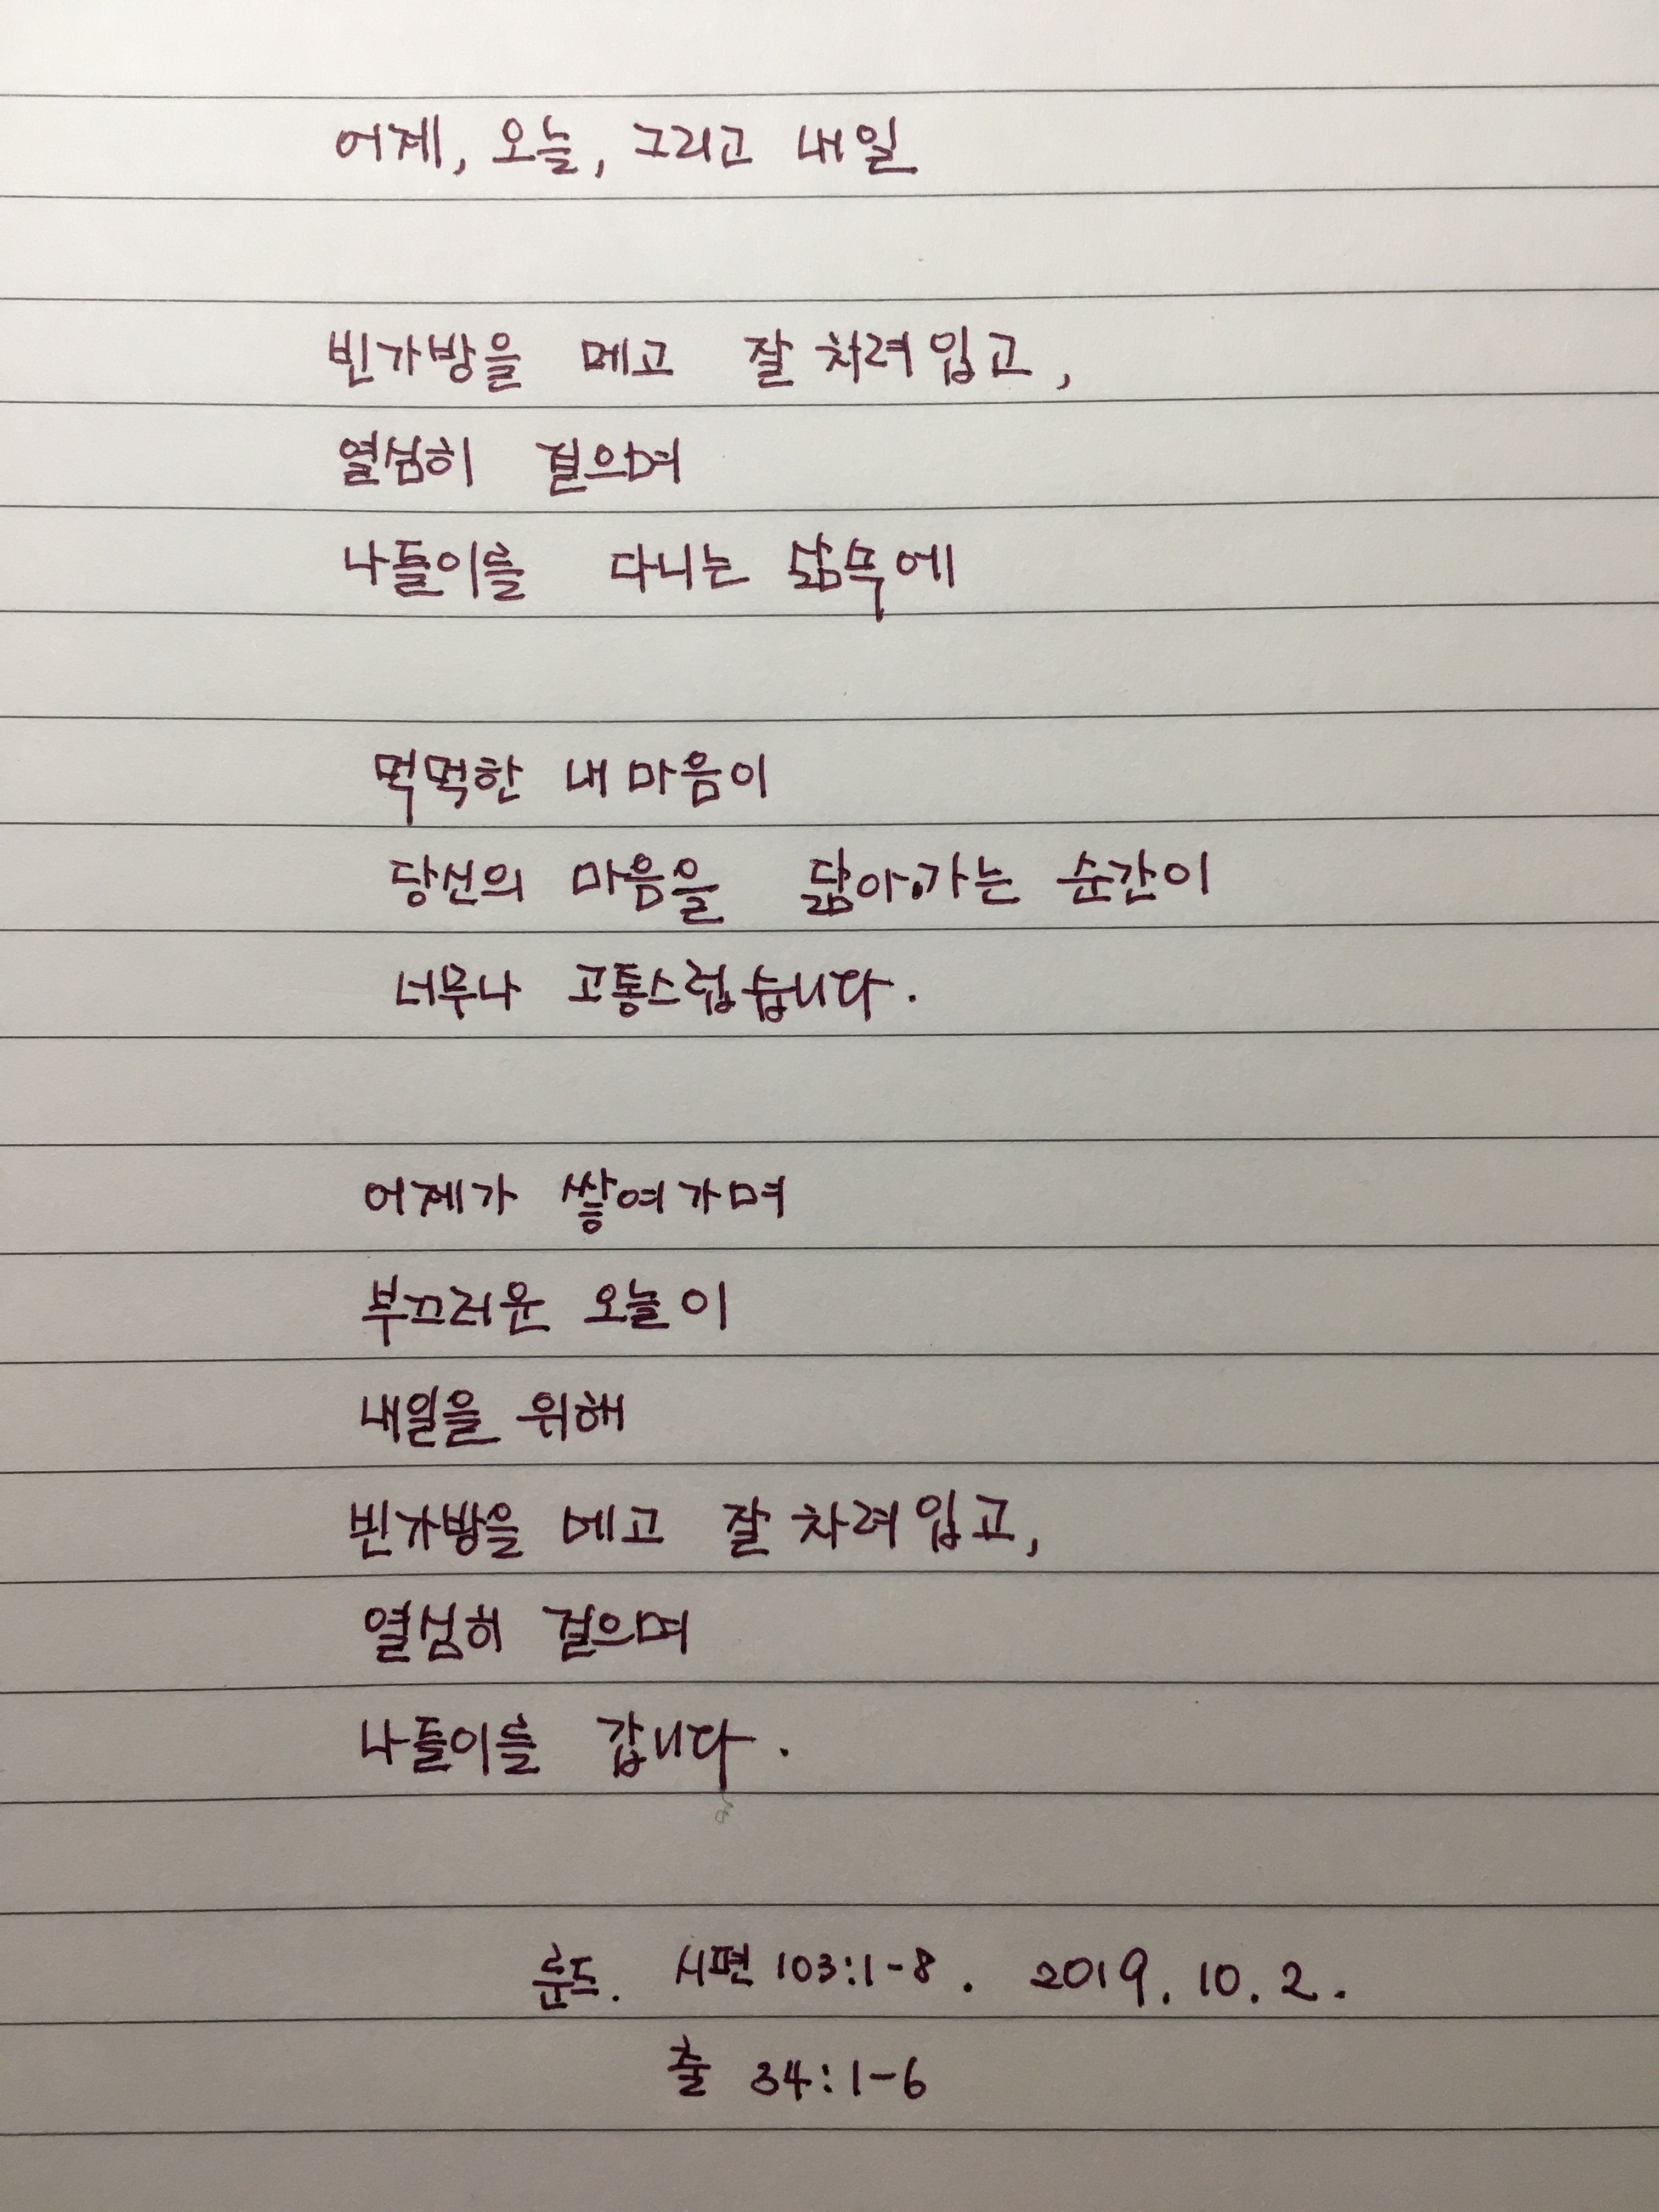 어제, 오늘, 그리고 내일
빈가방을 메고 잘 차려입고,
열심히 걸으며
나들이를 다니는 삶속에
먹먹한 내 마음이
당신의 마음을 닮아가는 순간이
너무나 고통스럽습니다.
어제가 쌓여가며
부끄러운 오늘이
내일을 위해
빈가방을 메고 잘 차려입고,
열심히 걸으며
나들이를 갑니다.
룬드. 시편 103:1-8. 2019. 10. 2.
출 34:1-6